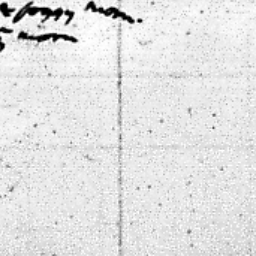 foggy morn.
morn